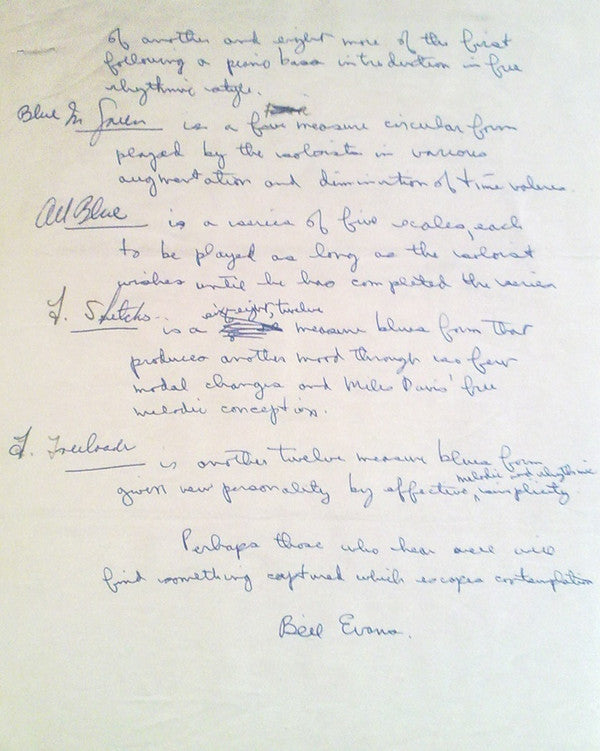 of another and eight more of the first
following a piano bass introduction in free
rhythmic style.
Blue In Green is a four measure circular form
played by the soloists in various
augmentation and diminution of time values.
All Blue is a series of five scales, each
to be played as long as the soloist
wishes until he has completed the series
F. Sketches is a six eight, twelve measure blues form that
produces another mood through its few
modal changes and Miles Davis' free
melodic conception.
F. Freeloader is another twelve measure blues form
given new personality by effective melodic and rhythmic simplicity.
Perhaps those who hear well will
find something captured which escapes contemplation
Bill Evans.